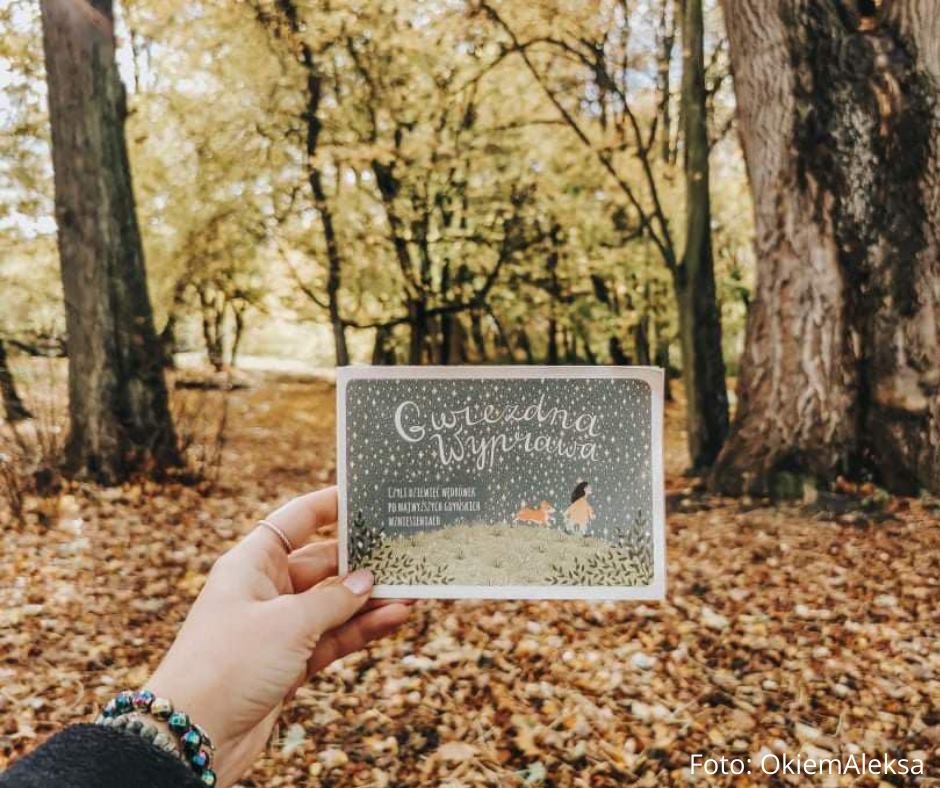 Gwiezdna
Wyprawa
CZYLI DZIEWIĘĆ WĘDRÓWEK
PO NAJWYŻSZYCH GDYŃSKICH
WZNIESIENIACH
Foto: OkiemAleksa